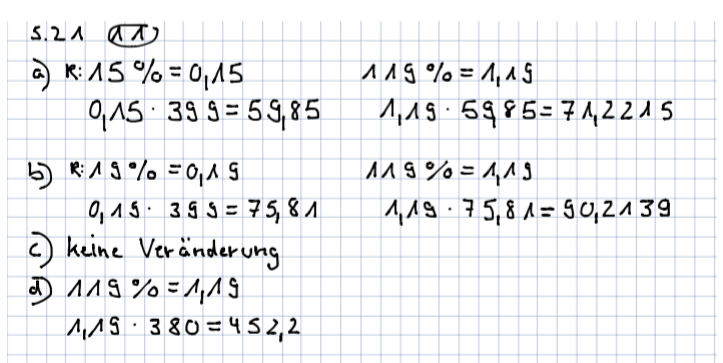 S. 21 11)
a) R: 15 % = 0,15 119 % = 1,19
0,15 · 399 = 59,85 1,19 · 59,85 = 71,2215
b) R: 19 % = 0,19 119 % = 1,19
0,19 · 399 = 75,81 1,19 · 75,81 = 90,2139
c) keine Veränderung
d) 119 % = 1,19
1,19 · 380 = 452,2